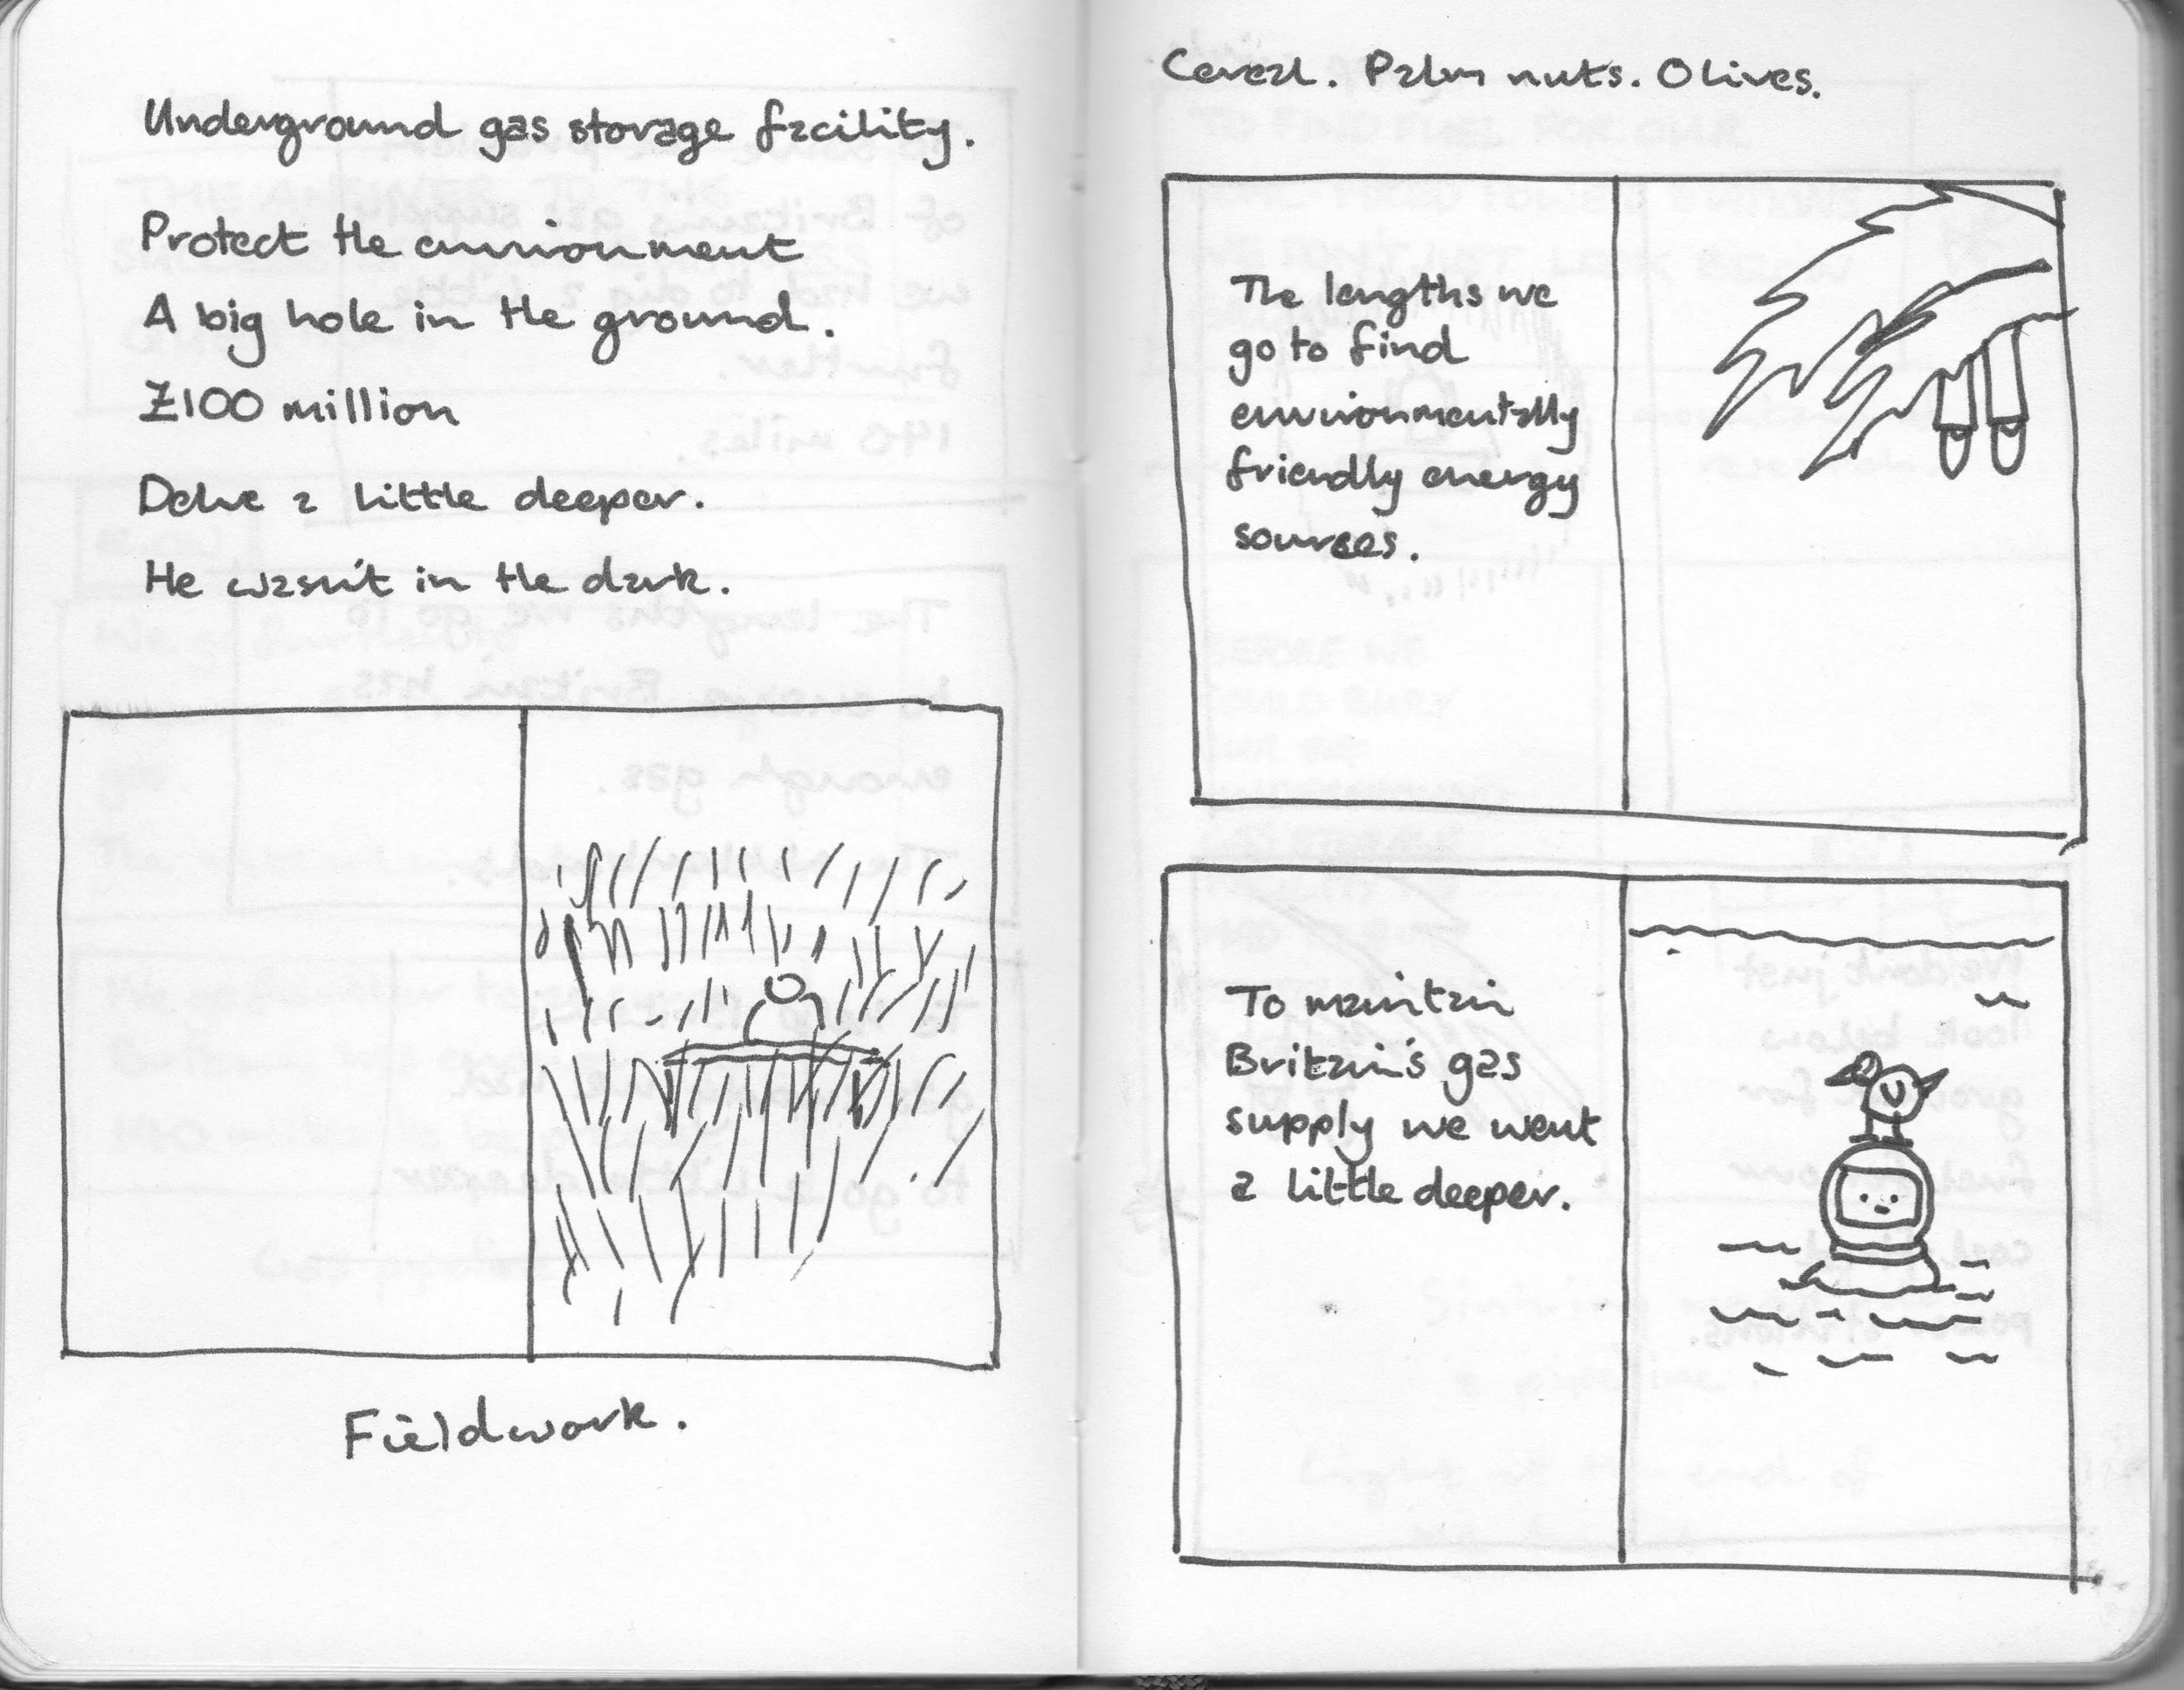 Underground gas storage facility.
Protect the environment
A big hole in the ground.
£100 million
Delve a little deeper.
He wasn't in the dark.
Fieldwork.
Cereal. Palm nuts. Olives.
The lengths we
go to find
environmentally
friendly energy
sources.
To maintain
Britain's gas
supply we went
a little deeper.